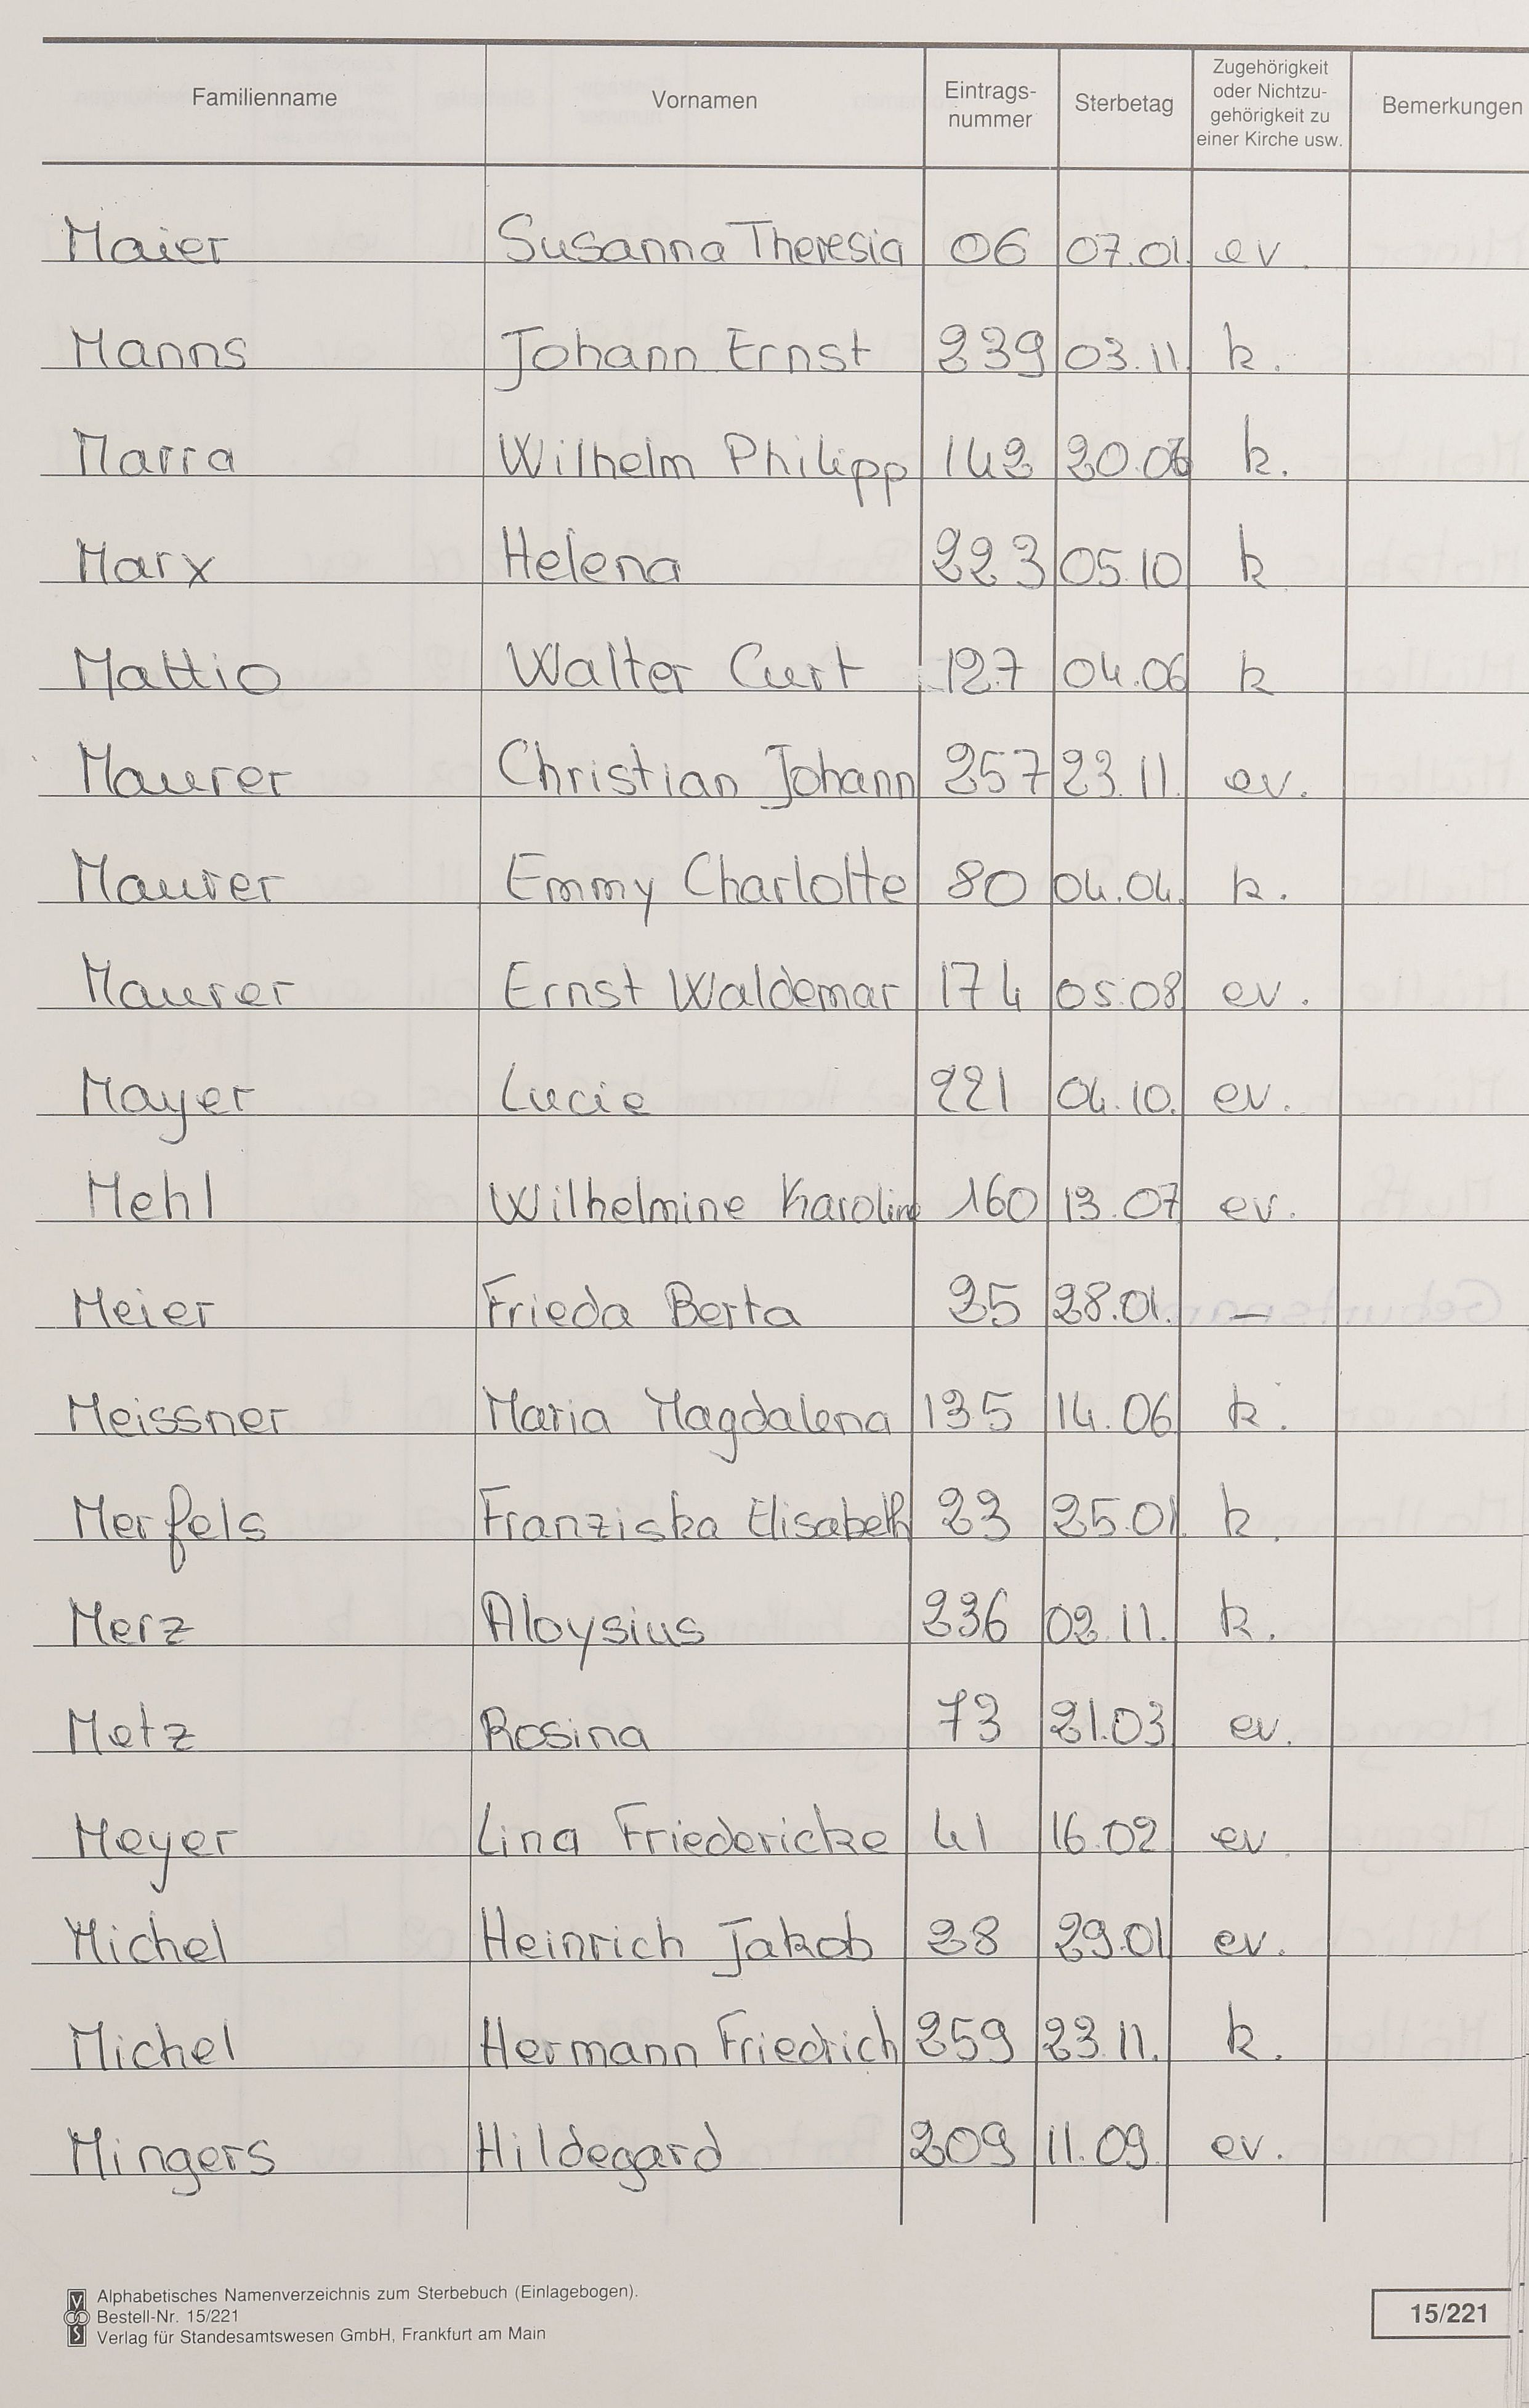 Familienname Vornamen Eintrags-nummer Sterbetag Zugehörigkeit oder Nichtzu-gehörigkeit zu einer Kirche usw. Bemerkungen
Maier Susanna Theresia 06 07.01. ev.
Manns Johann Ernst 239 03.11. k.
Marra Wilhelm Philipp 142 20.06 k.
Marx Helena 223 05.10 k
Mattio Walter Curt 127 04.06 k
Maurer Christian Johann 257 23.11. ev.
Maurer Emmy Charlotte 80 04.04. k.
Maurer Ernst Waldemar 174 05.08 ev.
Mayer Lucie 221 04.10. ev.
Mehl Wilhelmine Karoline 160 13.07 ev.
Meier Frieda Berta 25 28.01. —
Meissner Maria Magdalena 135 14.06 k.
Merfels Franziska Elisabeth 23 25.01 k.
Merz Aloysius 236 02.11. k.
Metz Rosina 73 21.03 ev.
Meyer Lina Friedericke 41 16.02 ev.
Michel Heinrich Jakob 28 29.01 ev.
Michel Hermann Friedrich 259 23.11. k.
Mingers Hildegard 209 11.09. ev.
Alphabetisches Namenverzeichnis zum Sterbebuch (Einlagebogen).
Bestell-Nr. 15/221
Verlag für Standesamtswesen GmbH, Frankfurt am Main
15/221